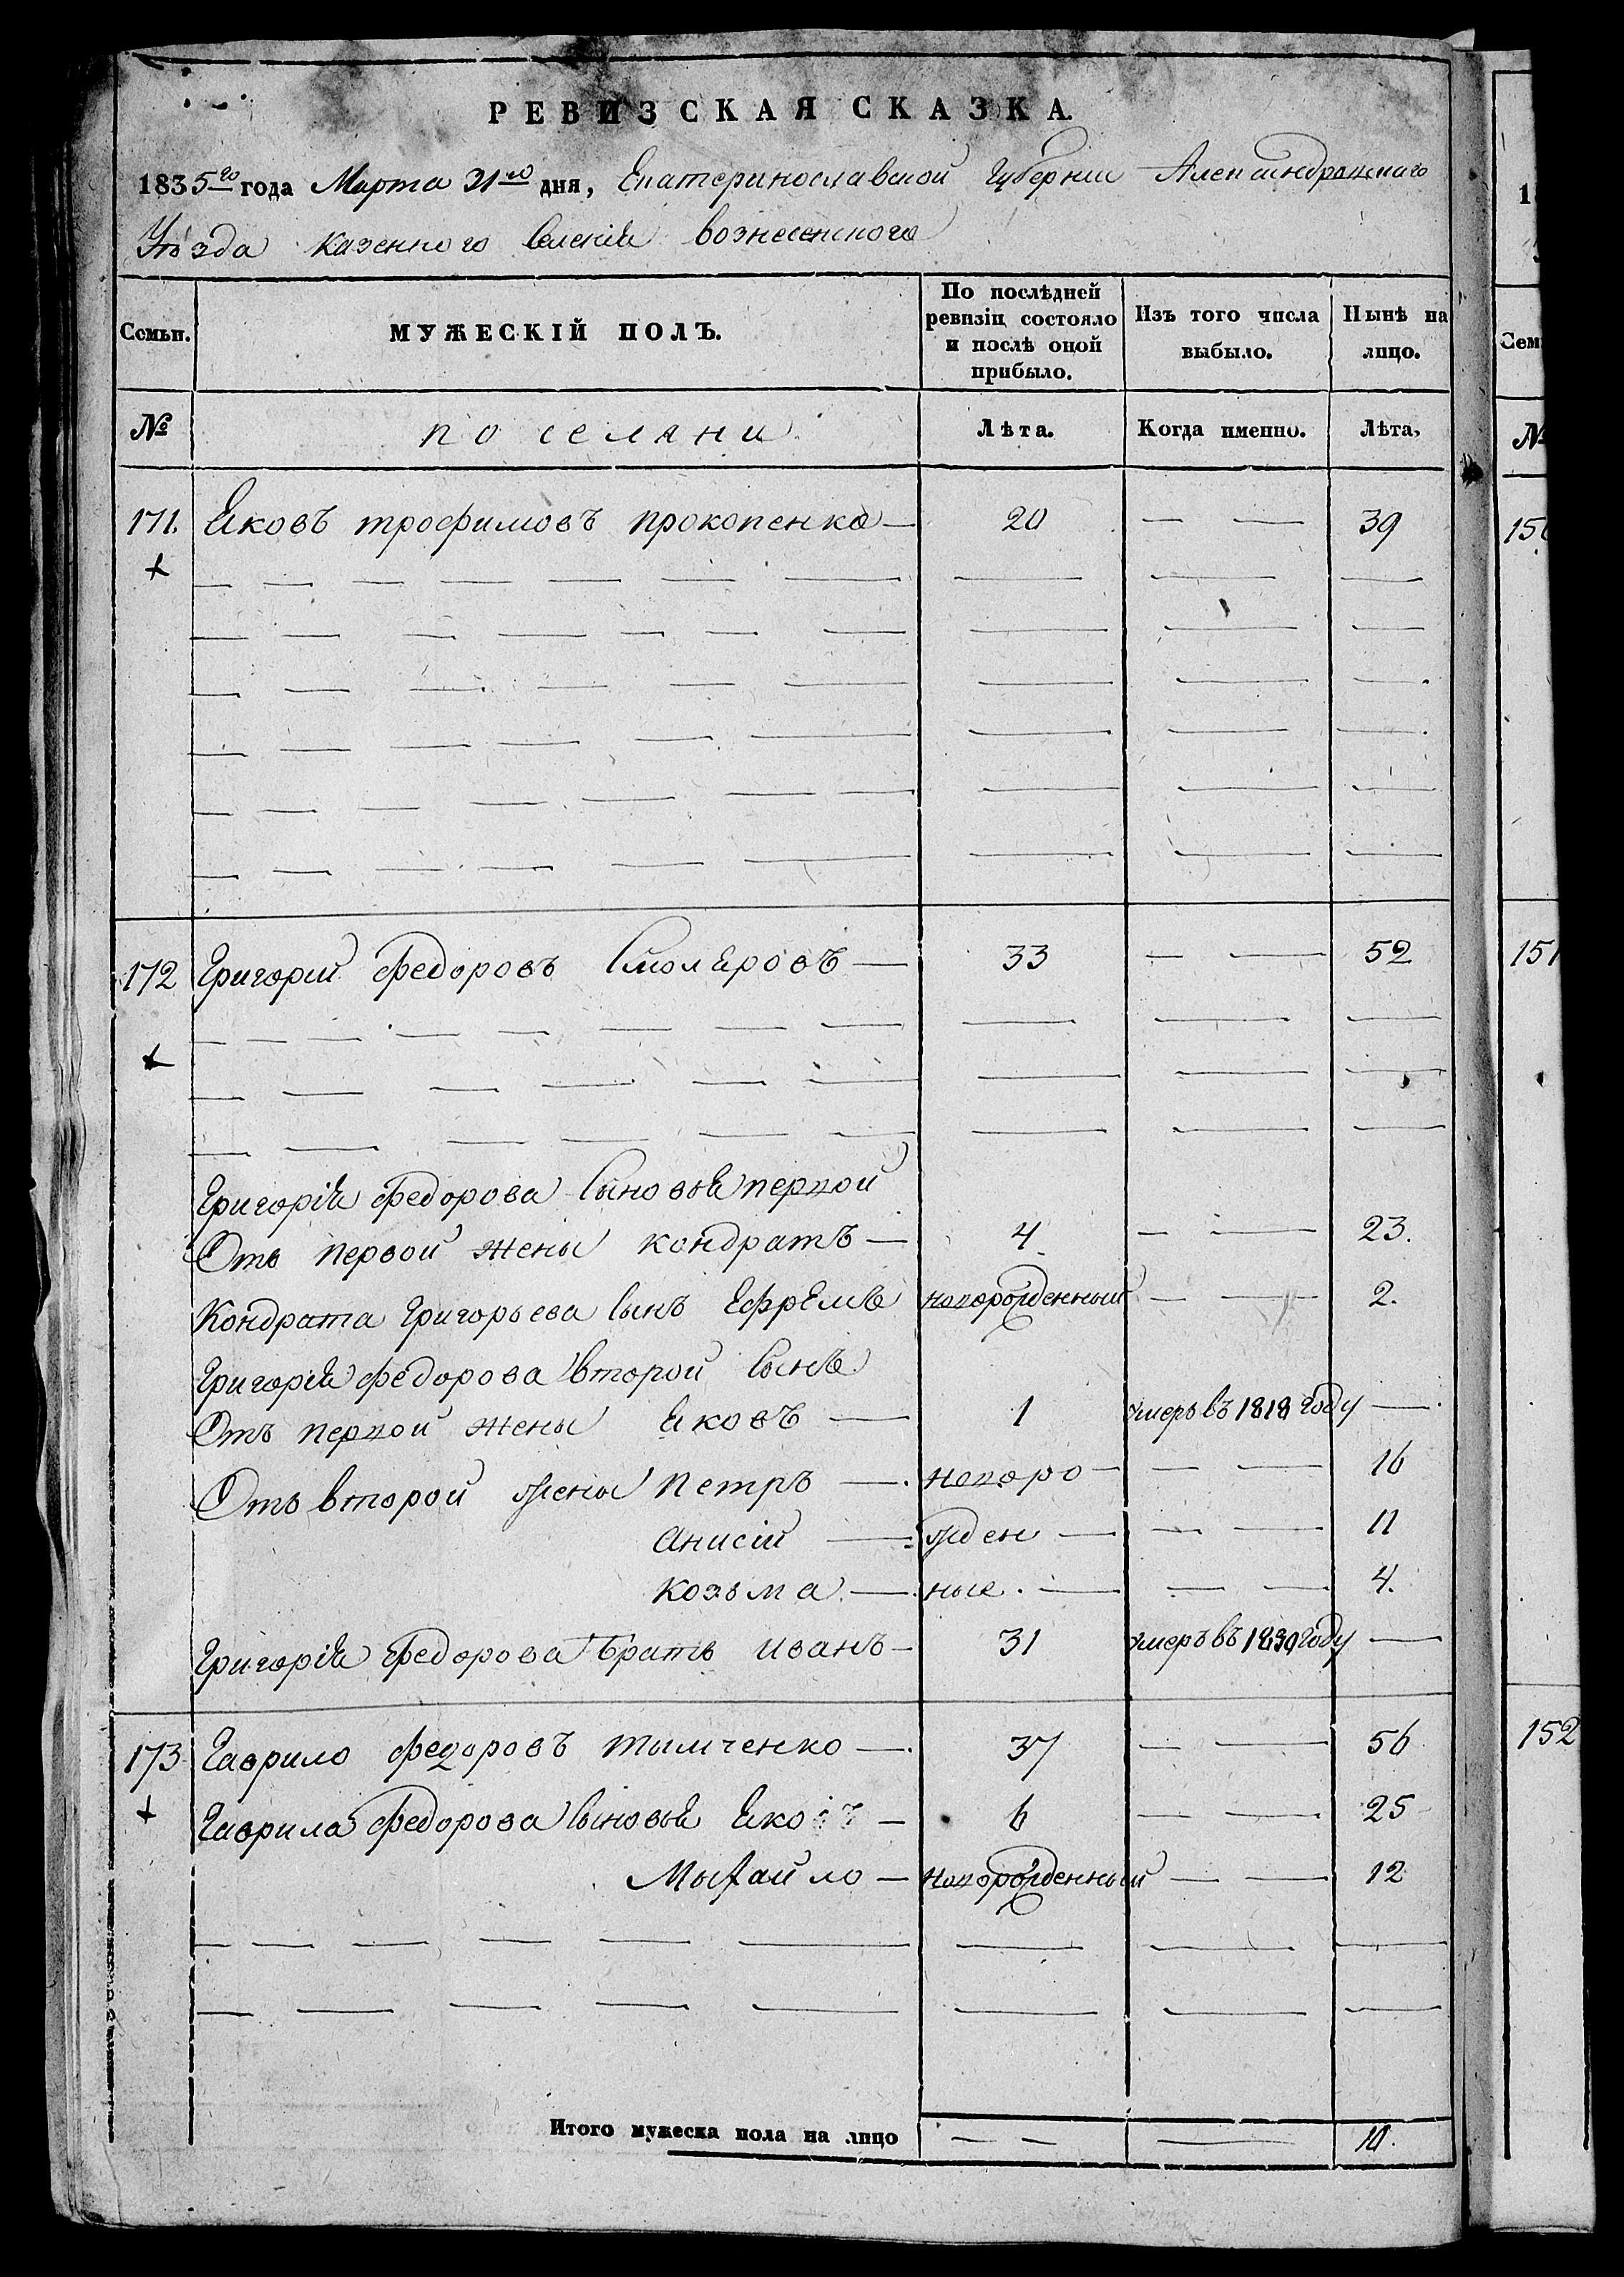 РЕВИЗСКАЯ СКАЗКА.
1835го года Марта 31го дня, Екатеринославской Губернии Александровскаго
Уѣзда казенного Селенія вознесенского
Семьи. МУЖЕСКІЙ ПОЛЪ. По послѣдней ревизіи состояло и послѣ оной прибыло. Изъ того числа выбыло. Нынѣ на лицо.
№ поселяни Лѣта. Когда именно. Лѣта.
171. Яковъ трофимовъ прокопенко — 20 — — 39
172 Григорий Федоровъ Смоляровъ — 33 — — 52
Григорія Федорова Сыновья первой
Отъ первой жены кондратъ — 4 — — 23.
Кондрата Григорьева Сынъ Ефремъ новорожденный — — 2.
Григорія Федорова второй Сынъ
Отъ первой жены Яковъ — 1 умеръ въ 1818 году —
Отъ второй жены Петръ — новоро — — — 16
Анисій — жден — — — 11
Козьма — ные — — — 4.
Григорія Федорова братъ иванъ — 31 умеръ въ 1830 году —
173 Гаврило Федоровъ тымченко — 37 — — 56
Гаврила Федорова Сыновья Яковъ — 6 — — 25
Мыхайло — новорожденный — — 12
Итого мужеска пола на лицо — — — 10.
1
Сем
№
150
151
152